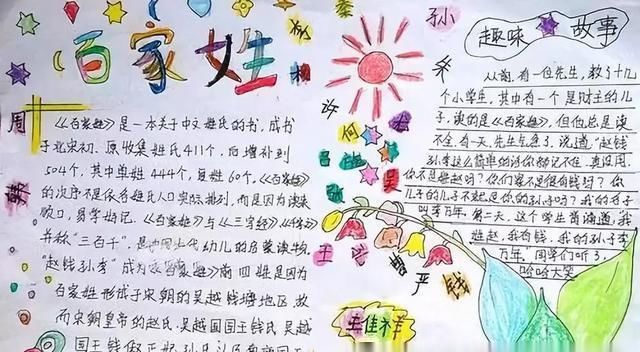 百家姓
秦
孙
趣味故事
朱
周
许
何
吕
吴
王
严
钱
王佳祥
《百家姓》是一本关于中文姓氏的书，成书
于北宋初。原收集姓氏411个，后增补到
504个，其中单姓444个，复姓60个。《百家姓》
的次序不是依各姓氏人口实际排列，而是因为读来
顺口，易学好记。《百家姓》与《三字经》《千字文》
并称"三百千"，是中国古代幼儿的启蒙读物。
"赵钱孙李"成为《百家姓》前四姓是因为
百家姓形成于宋朝的吴越钱塘地区，故
而宋朝皇帝的赵氏、吴越国国王钱氏、吴越
国王钱俶正妃孙氏以及南唐国
从前，有一位先生，教了十几
个小学生，其中有一个是财主的儿
子，读的是《百家姓》，但他总是读
不全。有一天，先生气急了，说道："赵钱
孙李这么简单的话你都记不住，真没用。
你不是姓赵吗？你们家不是很有钱吗？你
儿子的儿子不就是你的孙子吗？我的名字
叫李万年。"第二天，这个学生背诵道："我
姓赵，我有钱，我的孙子李
万年。"同学们听了，
哈哈大笑